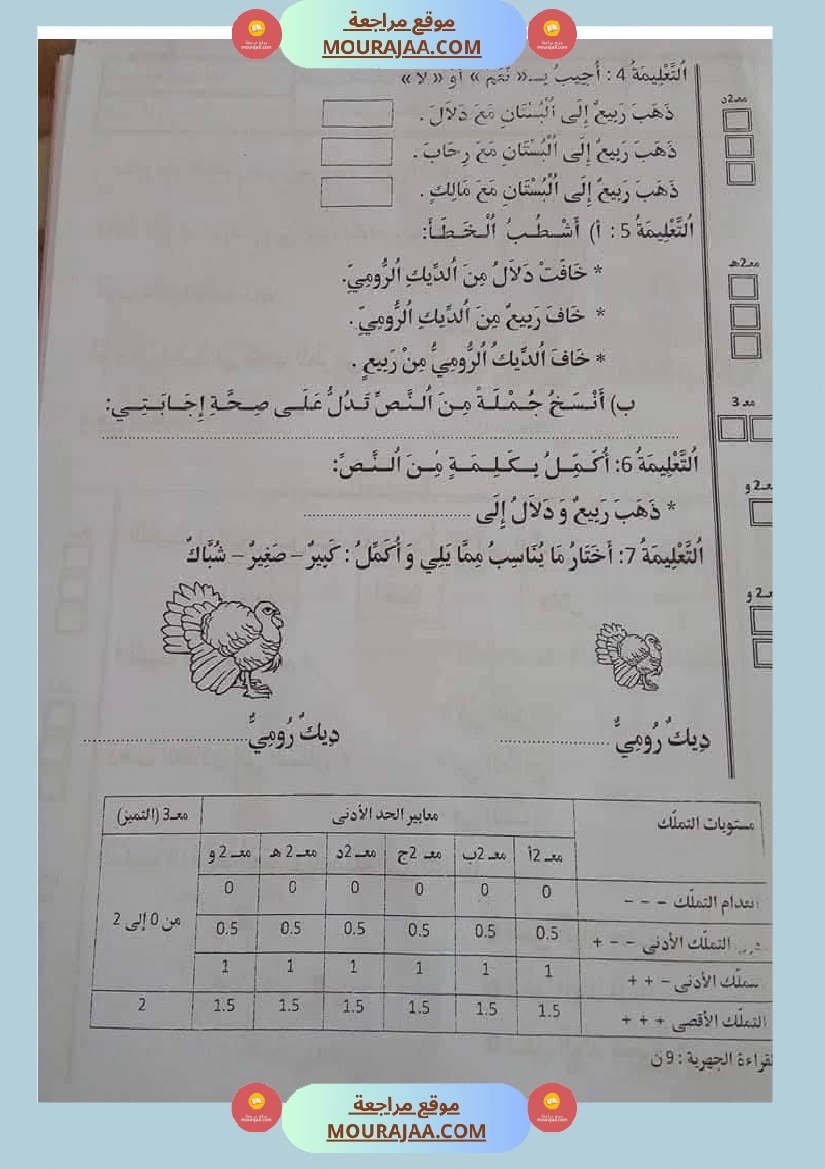 موقع مراجعة
MOURAJAA.COM
اَلتَّعْلِيمَةُ 4 : أُجِيبُ بِـ « نَعَمْ » أَوْ « لَا »
ذَهَبَ رَبِيعٌ إِلَى اَلْبُسْتَانِ مَعَ دَلاَلَ .
ذَهَبَ رَبِيعٌ إِلَى اَلْبُسْتَانِ مَعَ رِحَابَ .
ذَهَبَ رَبِيعٌ إِلَى اَلْبُسْتَانِ مَعَ مَالِكٍ .
معـ2د
اَلتَّعْلِيمَةُ 5 : أ) أَشْـطُـبُ اَلْـخَـطَـأَ:
* خَافَتْ دَلاَلُ مِنَ اَلدِّيكِ اَلرُّومِيِّ.
* خَافَ رَبِيعٌ مِنَ اَلدِّيكِ اَلرُّومِيِّ .
* خَافَ اَلدِّيكُ اَلرُّومِيُّ مِنْ رَبِيعٍ .
معـ2هـ
ب) أَنْـسَـخُ جُـمْـلَـةً مِـنَ اَلـنَّـصِّ تَـدُلُّ عَـلَـى صِـحَّـةِ إِجَـابَـتِـي:
معـ 3
اَلتَّعْلِيمَةُ 6: أُكَـمِّـلُ بِـكَـلِـمَـةٍ مِـنَ اَلـنَّـصِّ:
* ذَهَبَ رَبِيعٌ وَ دَلاَلُ إِلَى ........................................
معـ2 و
اَلتَّعْلِيمَةُ 7: أَخْتَارُ مَا يُنَاسِبُ مِمَّا يَلِي وَ أُكَمِّلُ : كَبِيرٌ – صَغِيرٌ – شُبَّاكٌ
معـ2 و
دِيكٌ رُومِيٌّ ........................ دِيكٌ رُومِيٌّ ....................................
مستويات التملّك معايير الحد الأدنى معـ3 (التميز)
معـ 2أ معـ 2ب معـ 2ج معـ 2د معـ 2 هـ معـ 2 و
انعدام التملّك – – – 0 0 0 0 0 0
التملّك الأدنى – – + 0.5 0.5 0.5 0.5 0.5 0.5 من 0 إلى 2
الأدنى – + + 1 1 1 1 1 1
التملّك الأقصى + + + 1.5 1.5 1.5 1.5 1.5 1.5 2
الجهرية : 9 ن
موقع مراجعة
MOURAJAA.COM